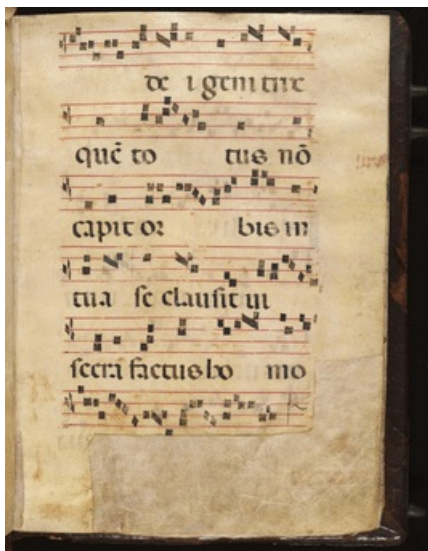 de i genitrix
quē to tus nō
capit or bis in
tua se clausit ui
scera factus ho mo